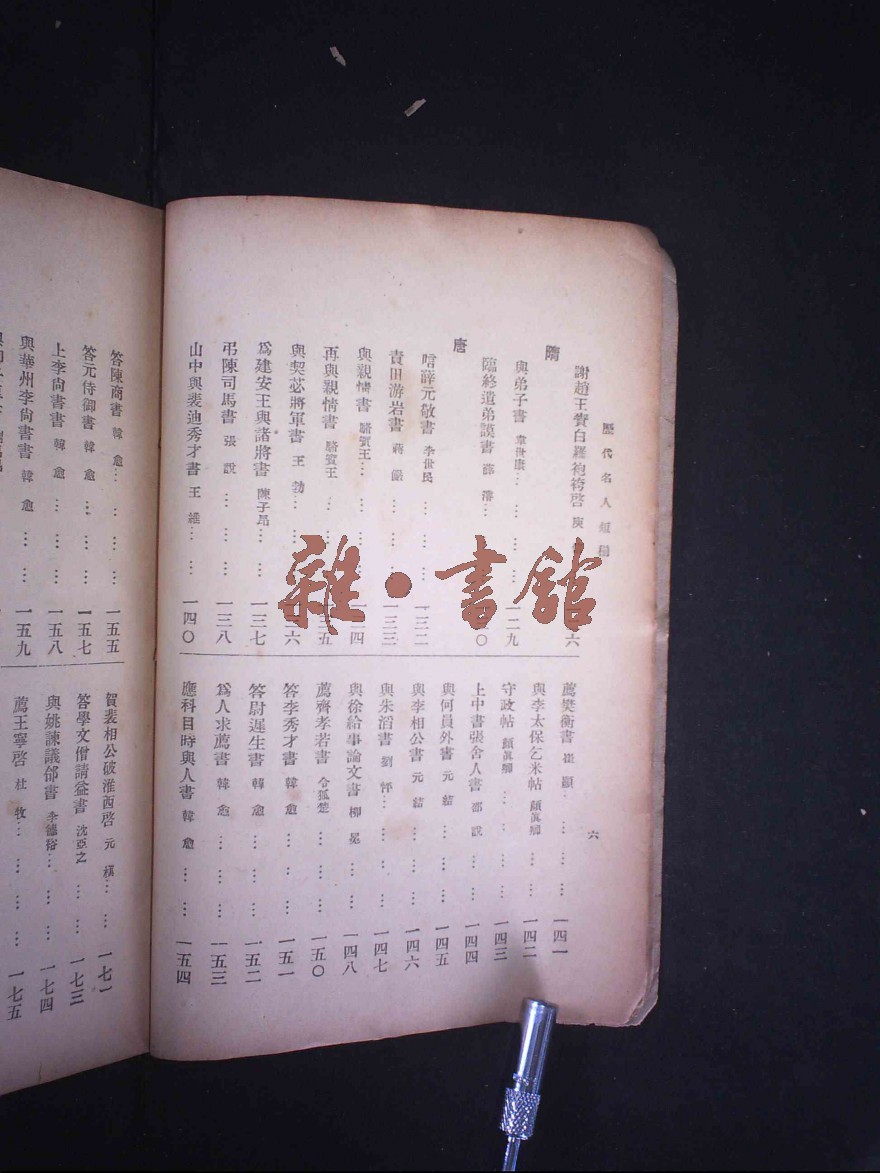 歷代名人短札
六
謝趙王賚白羅袍袴啓 庾 六
隋
與弟子書 韋世康 … … … 一二九
臨終遺弟謨書 薛濬 … 〇
唐
誚薛元敬書 李世民 … … … 一三二
責田游岩書 蔣儼 … … … 一三三
與親情書 駱賓王 … … 一三四
再與親情書 駱賓王 … 五
與契苾將軍書 王勃 … … 六
爲建安王與諸將書 陳子昂 … … 一三七
弔陳司馬書 張說 … … … … 一三八
山中與裴迪秀才書 王維 … … 一四〇
薦樊衡書 崔顥 … … … … 一四一
與李太保乞米帖 顏眞卿 … … … 一四二
守政帖 顏眞卿 … … … … 一四三
上中書張舍人書 邵說 … … … 一四四
與何員外書 元結 … … … 一四五
與李相公書 元結 … … … 一四六
與朱滔書 劉怦 … … … … 一四七
與徐給事論文書 柳冕 … … … 一四八
薦齊孝若書 令狐楚 … … … … 一五〇
答李秀才書 韓愈 … … … … 一五一
答尉遲生書 韓愈 … … … … 一五二
爲人求薦書 韓愈 … … … … 一五三
應科目時與人書 韓愈 … … 一五四
答陳商書 韓愈 … … … … 一五五
答元侍御書 韓愈 … … … 一五七
上李尙書書 韓愈 … … … 一五八
與華州李尙書書 韓愈 … … 一五九
賀裴相公破淮西啓 元稹 … … 一七一
答學文僧請益書 沈亞之 … … … 一七三
與姚諫議郃書 李德裕 … … … 一七四
薦王寧啓 杜牧 … … … … 一七五
雜·書館